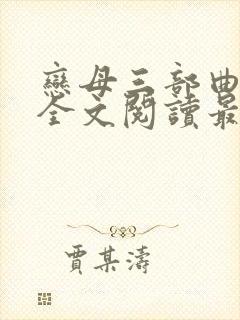 戀母三部曲
全文閱讀最
賈某濤